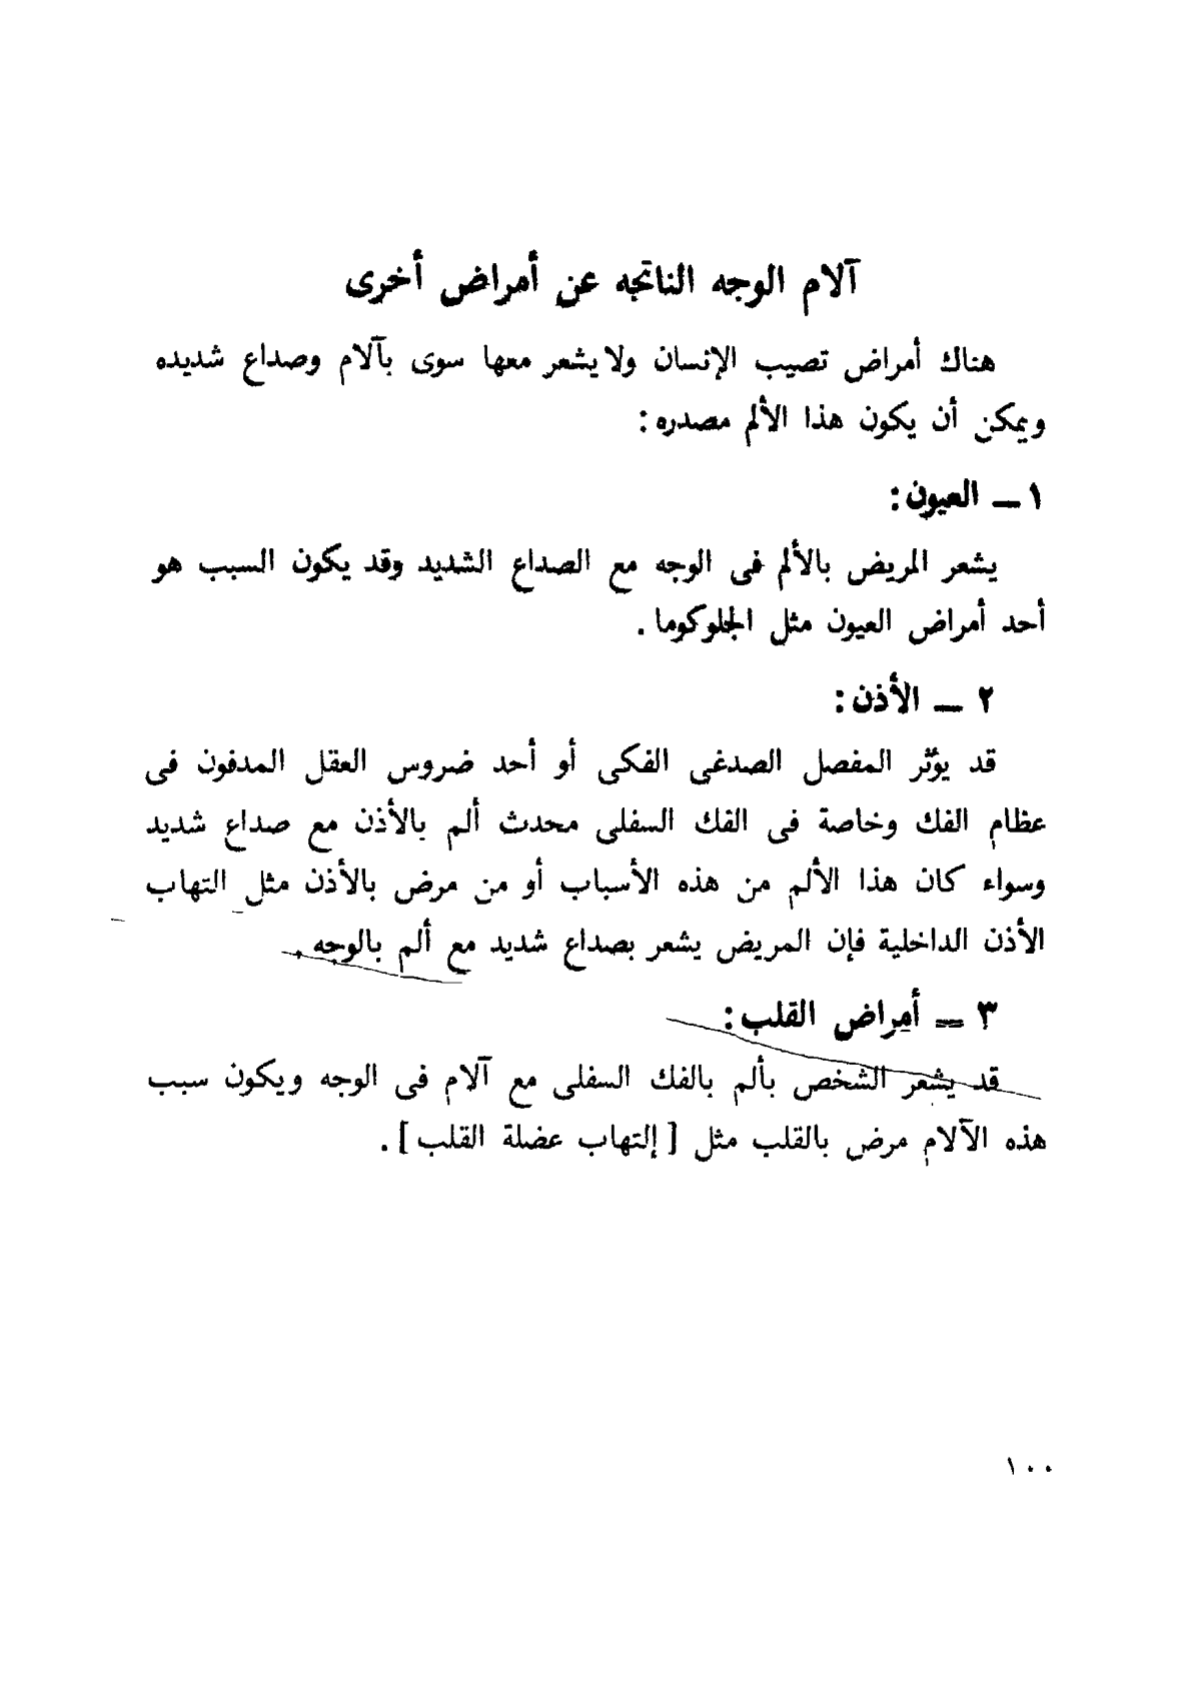 آلام الوجه الناتجه عن أمراض أخرى
هناك أمراض تصيب الإنسان ولا يشعر معها سوى بآلام وصداع شديده
ويمكن أن يكون هذا الألم مصدره :
١ ــ العيون :
يشعر المريض بالألم فى الوجه مع الصداع الشديد وقد يكون السبب هو
أحد أمراض العيون مثل الجلوكوما .
٢ ــ الأذن :
قد يؤثر المفصل الصدغى الفكى أو أحد ضروس العقل المدفون فى
عظام الفك وخاصة فى الفك السفلى محدث ألم بالأذن مع صداع شديد
وسواء كان هذا الألم من هذه الأسباب أو من مرض بالأذن مثل التهاب
الأذن الداخلية فإن المريض يشعر بصداع شديد مع ألم بالوجه .
٣ ــ أمراض القلب :
قد يشعر الشخص بألم بالفك السفلى مع آلام فى الوجه ويكون سبب
هذه الآلام مرض بالقلب مثل [ إلتهاب عضلة القلب ] .
١٠٠